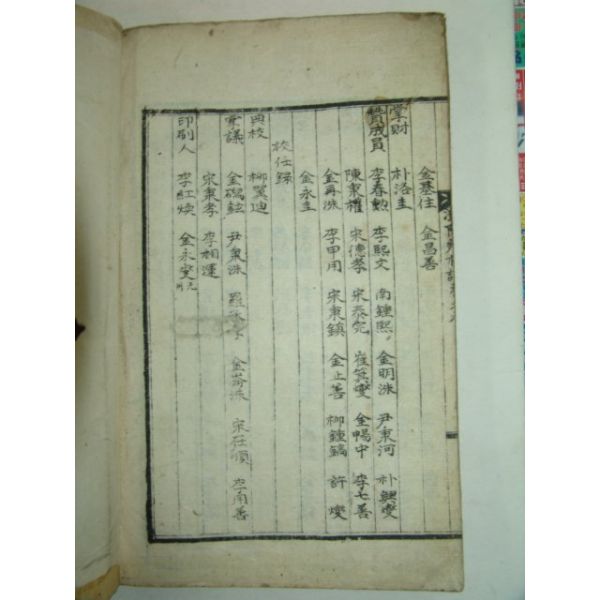 金基任 金昌善
掌財 朴浩圭
贊成員 李春勳 李熙文 南鍾熙 金明洙 尹秉河 朴興燮
陳秉權 宋德孝 宋泰完 崔箕燮 金暢中 李七善
金再洙 李甲用 宋秉鎮 金上善 柳鍾鎬 許燮
金永圭
校任錄
典校 柳冀迪
金碣鉉 尹秉洙 羅 金 洙 宋在順 李南善
宋秉孝 李相運
印刷人 李紅煥 金永燮